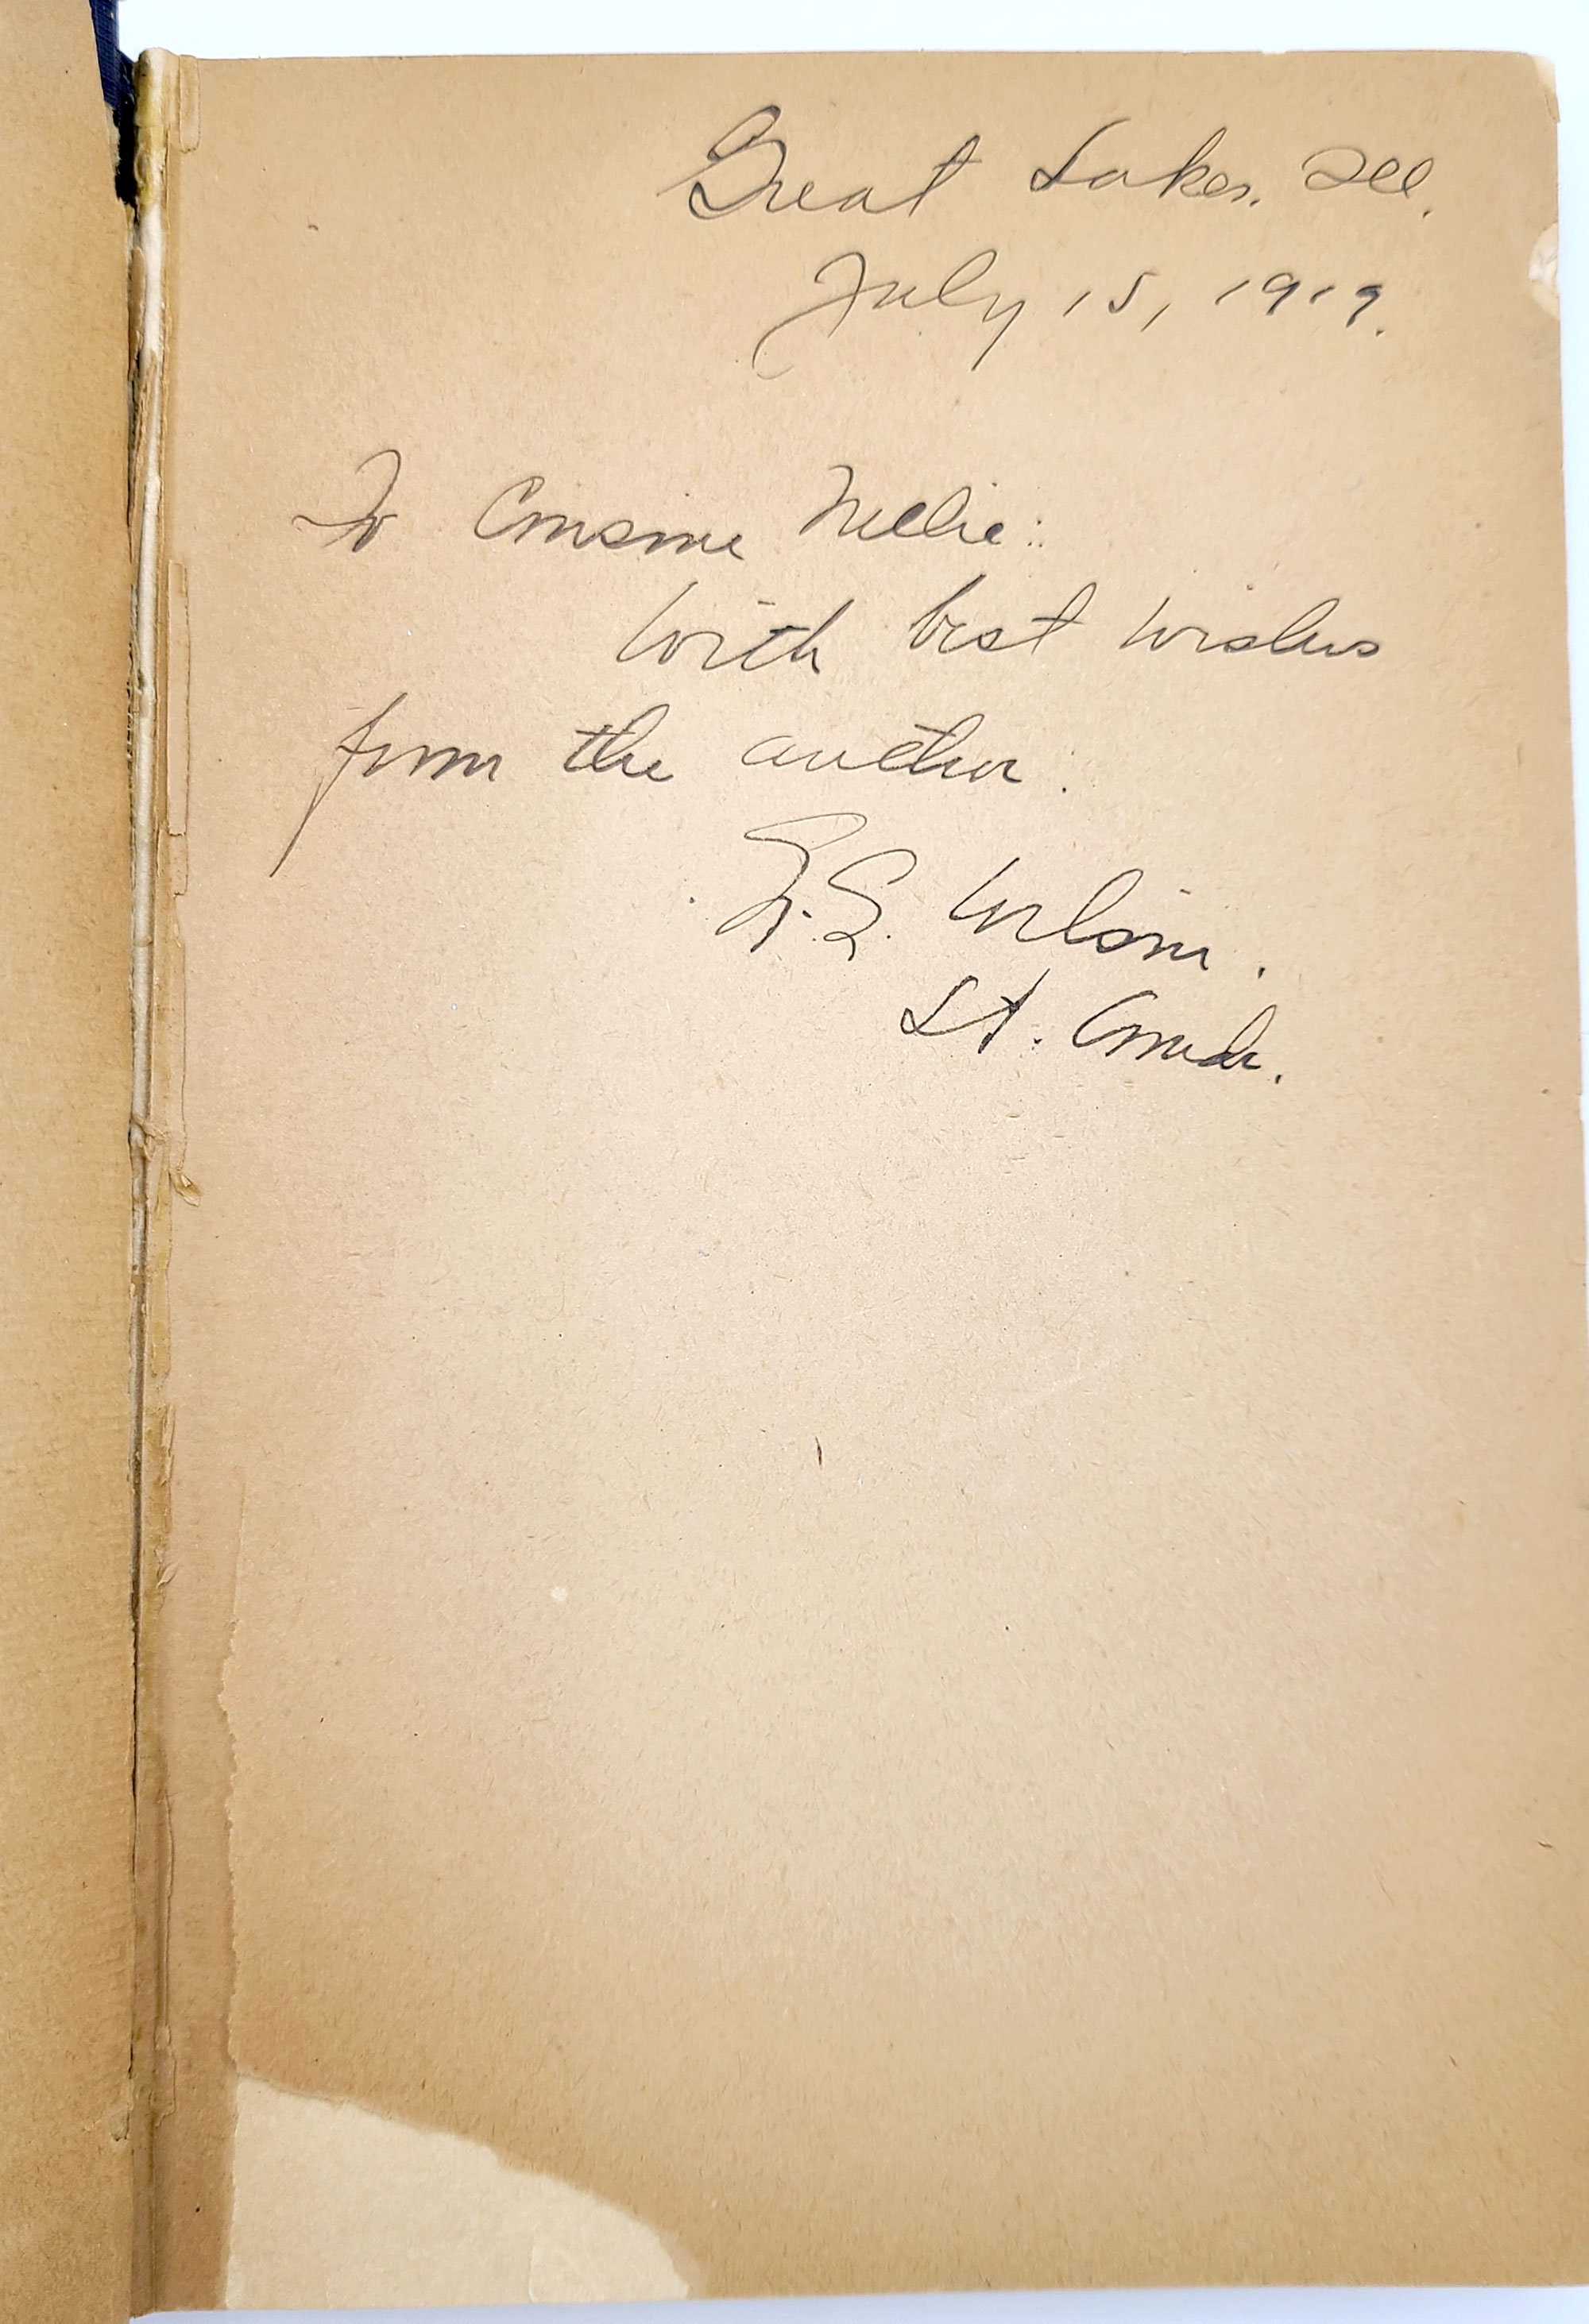 Great Lakes. Ill.
July 15, 1919.
To Cousin Nellie:
With best wishes
from the author.
Wilson.
Lt. Comdr.